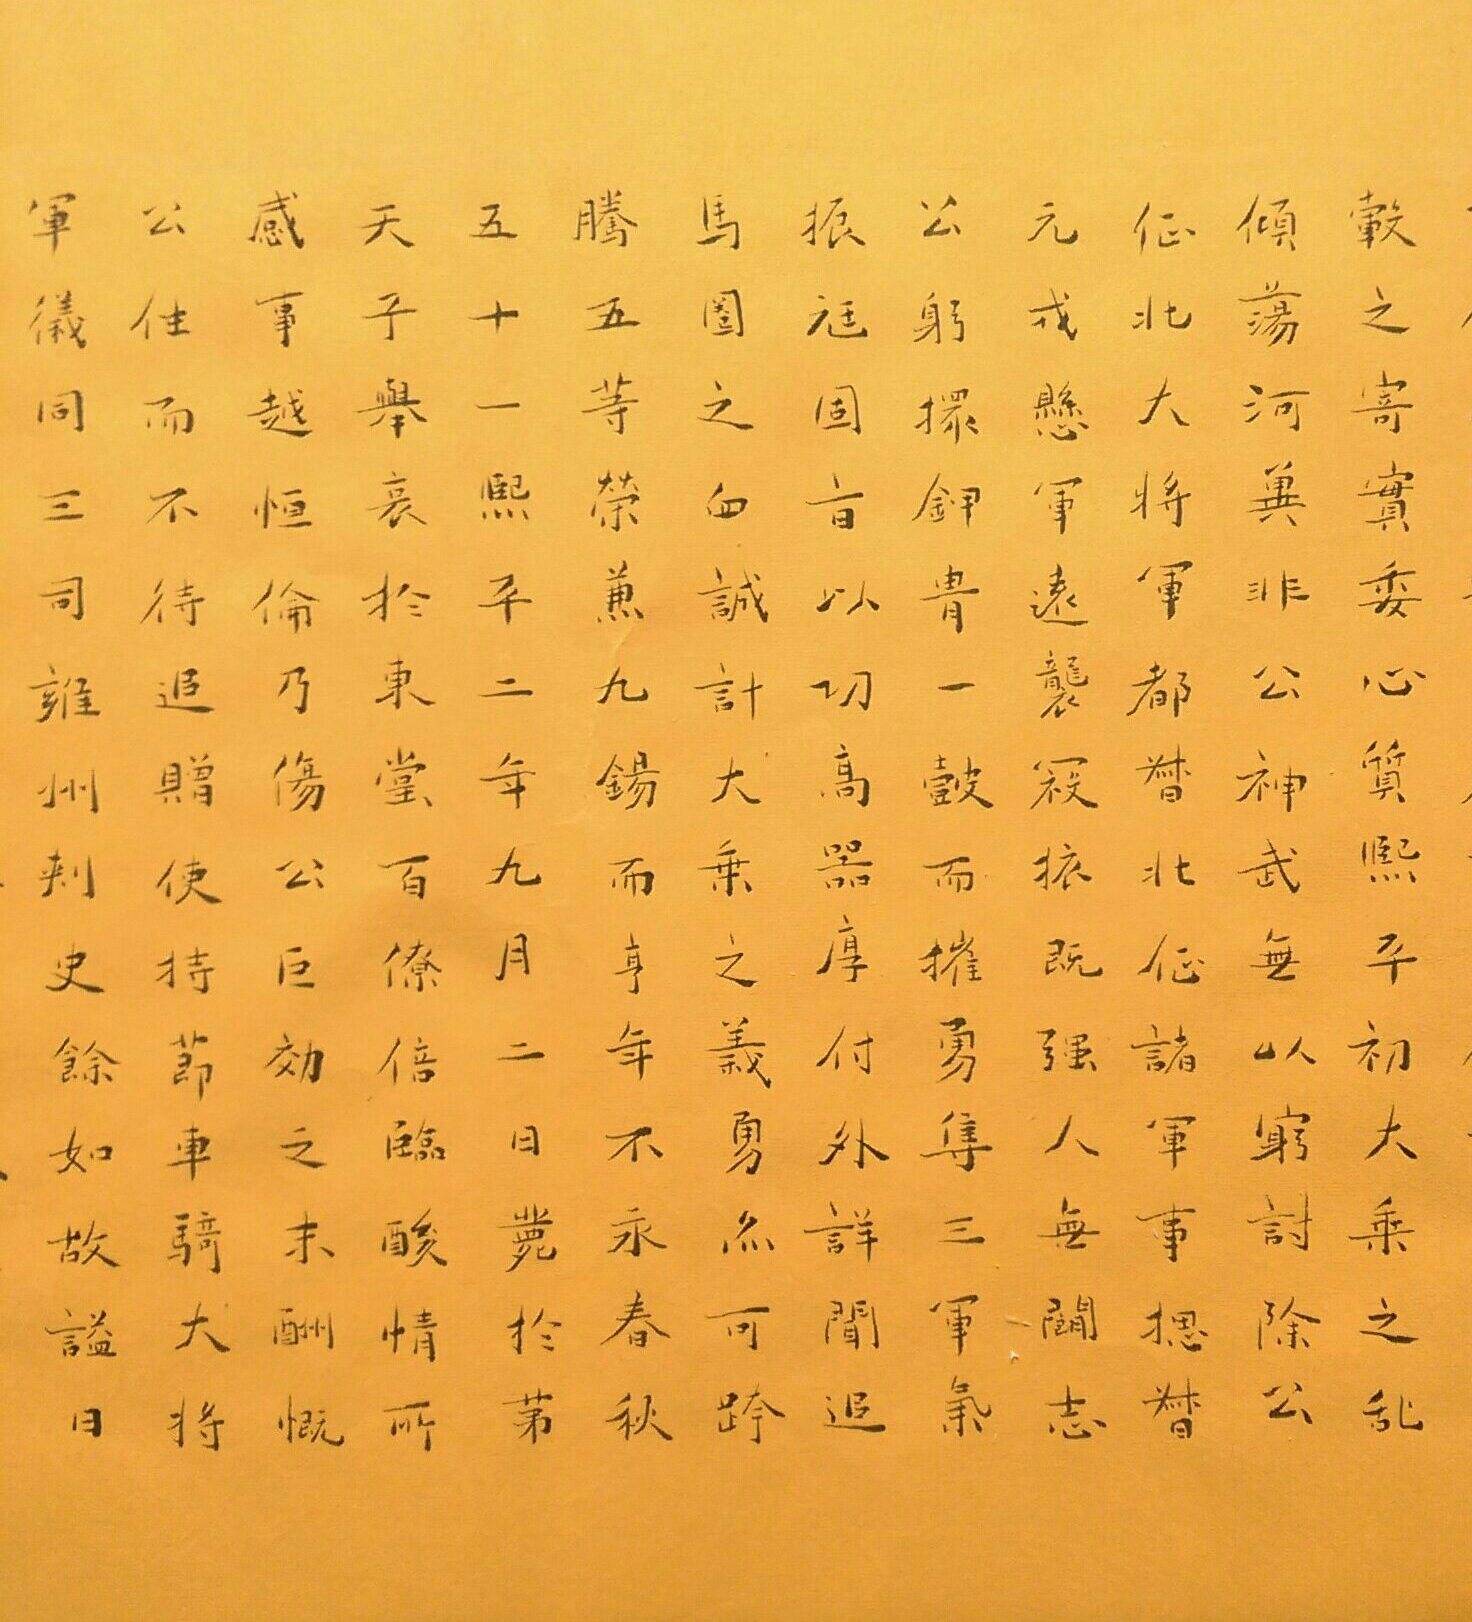 轂之寄實委心質熙平初大乘之乱
傾蕩河兾非公神武無以窮討除公
征北大將軍都督北征諸軍事揔督
元戎懸軍遠襲寇振既强人無鬭志
公躬擐鉀胄一鼓而摧勇隽三軍氣
振冦固旨以功高器厚付外詳聞追
馬圈之血誠計大乗之義勇尒可跨
騰五等榮兼九錫而享年不永春秋
五十一熙平二年九月二日薨於第
天子舉哀於東堂百僚倍臨酸情所
感事越恒倫乃傷公巨効之未酬慨
公往而不待追贈使持節車騎大將
軍儀同三司雍州刾史餘如故謚曰